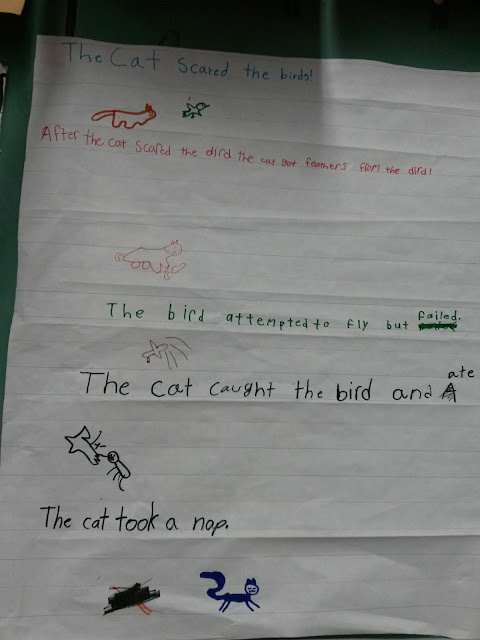 The Cat scared the birds!
After the cat scared the dird the cat got feathers from the dird!
The bird attempted to fly but failed.
The cat caught the bird and ate
The cat took a nap.